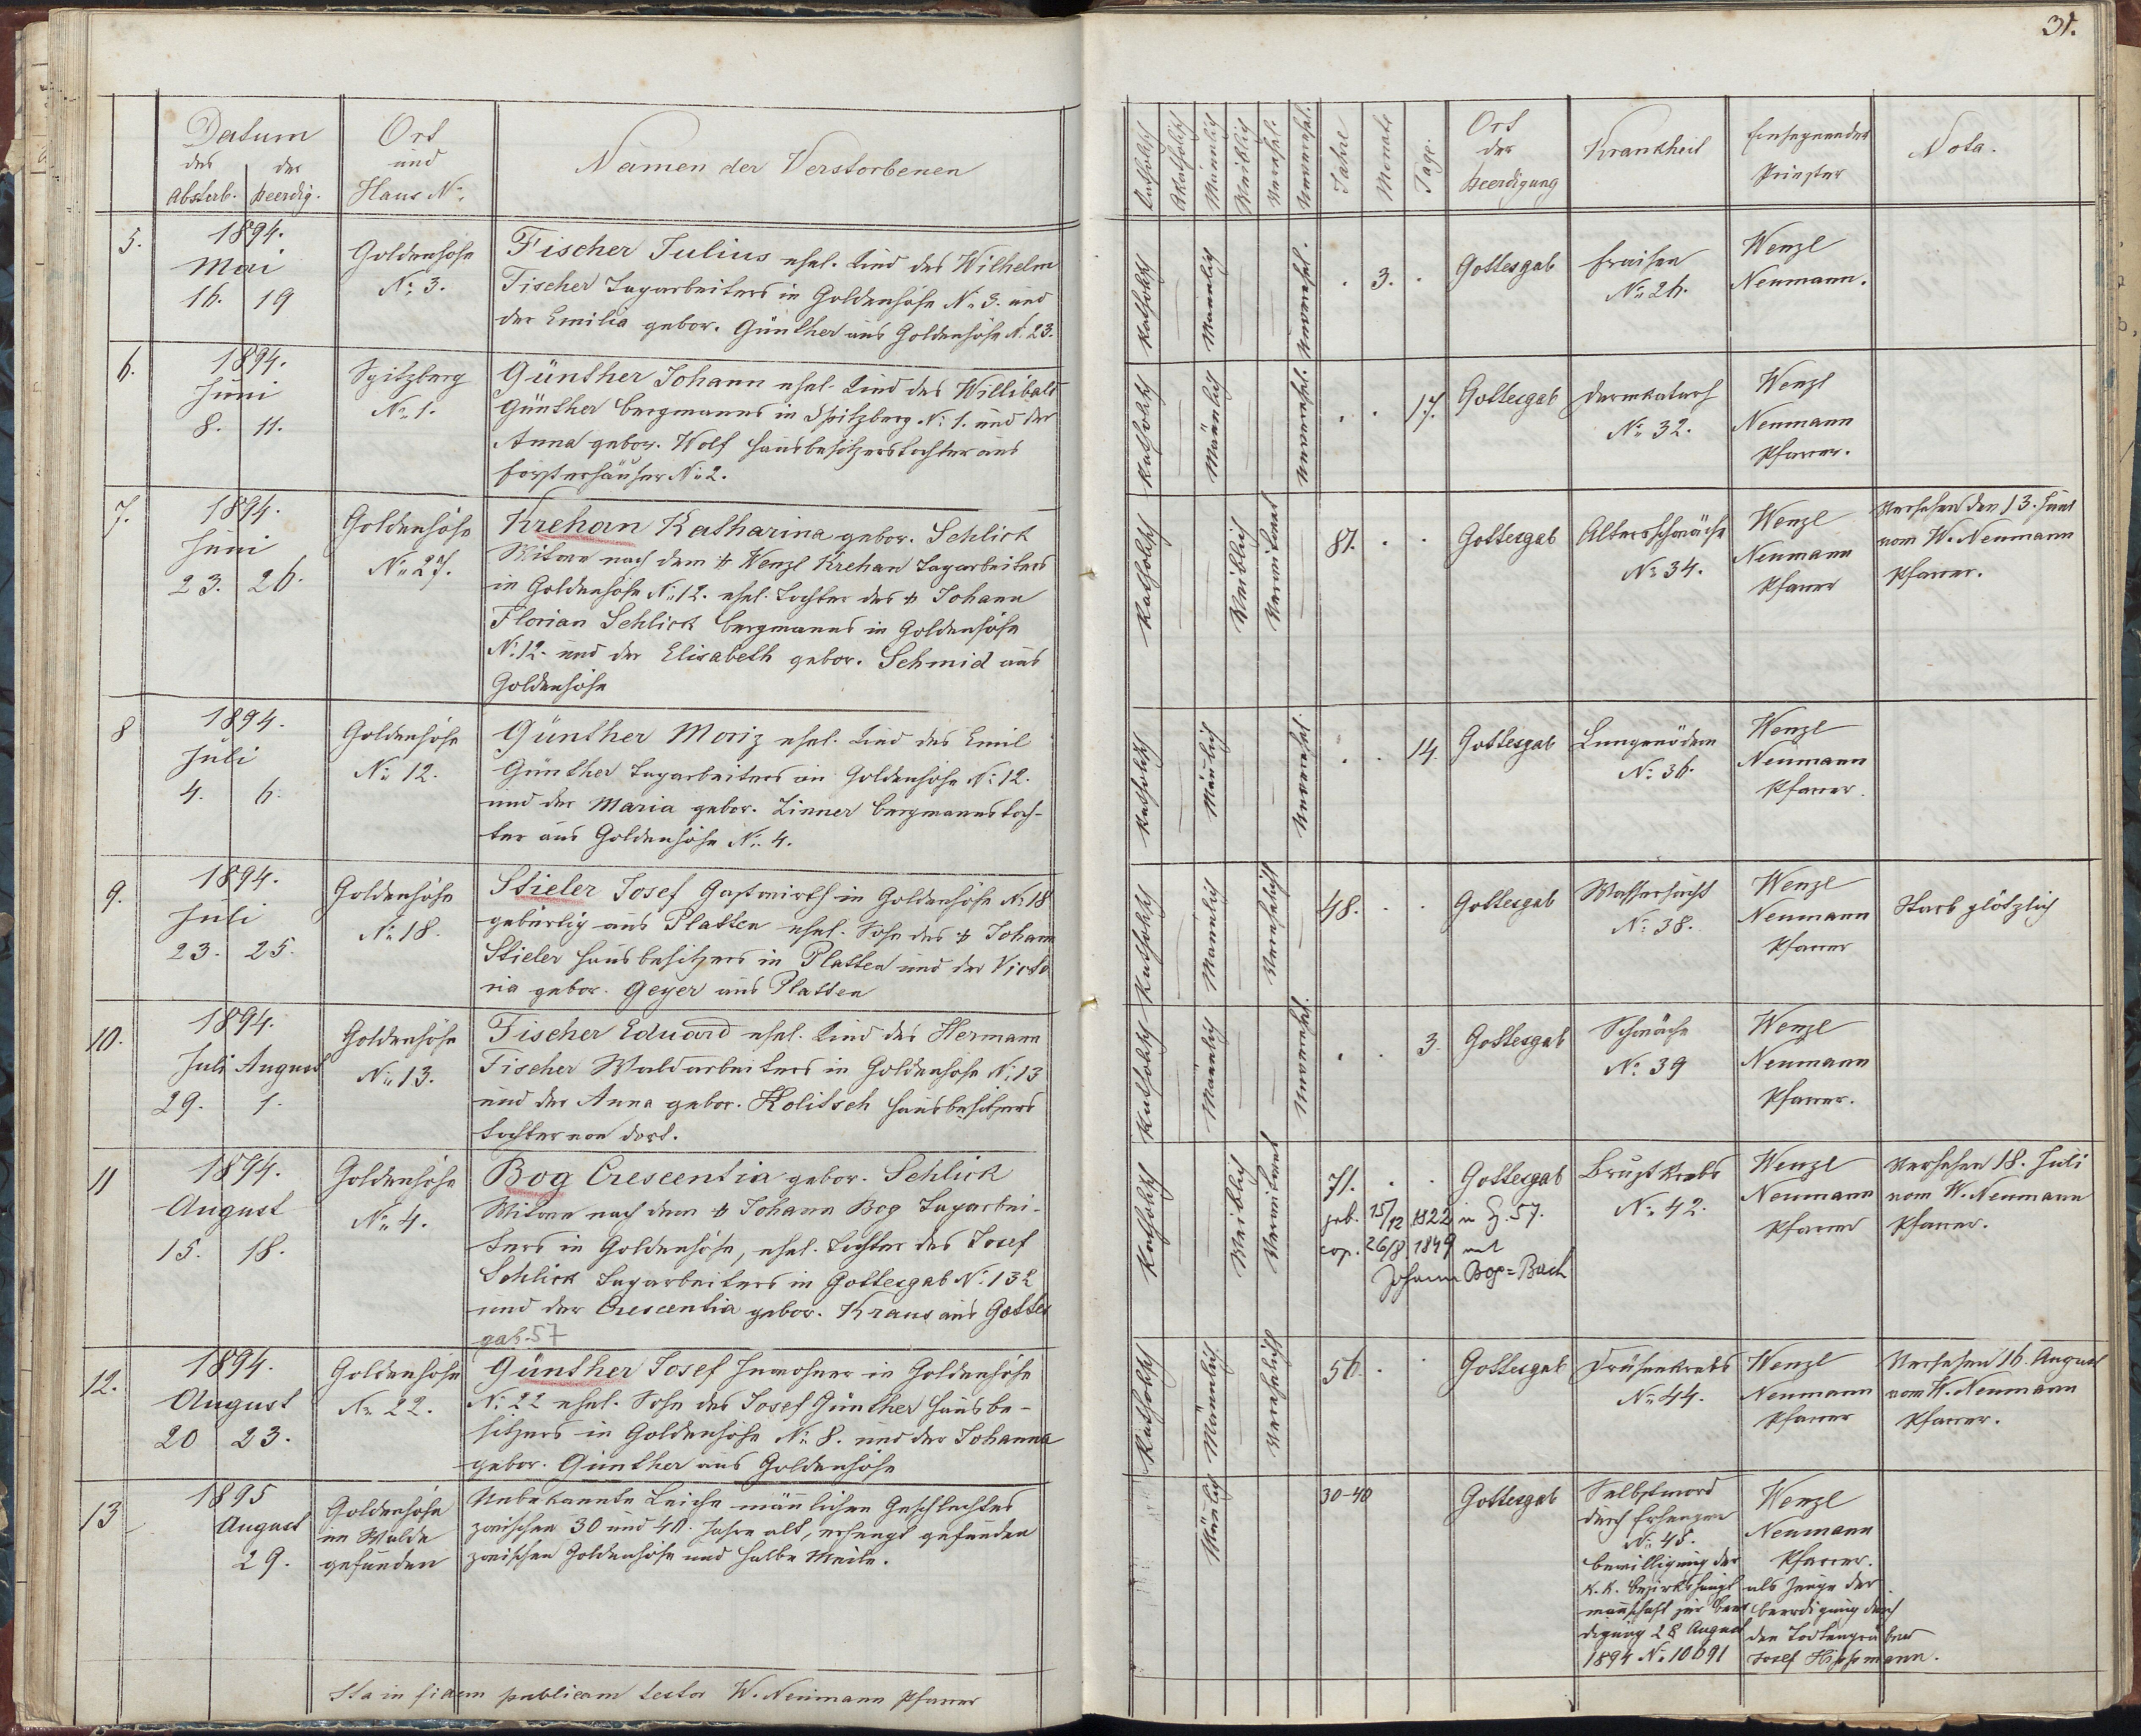 31.
Datum
des der
Absterb. Beerdig.
Ort
und
Haus No.
Namen der Verstorbenen
Katholisch
Akatholisch
Männlich
Weiblich
Verehel.
Unverehel.
Jahre
Monate
Tage.
Ort
der
Beerdigung
Krankheit
Einsegnender
Priester
Nota.
5.
1894.
Mai
16. 19
Goldenhöhe
No. 3.
Fischer Julius ehel. Kind des Wilhelm
Fischer Tagarbeiters in Goldenhöhe No. 3. und
der Emilia gebor. Günther aus Goldenhöhe N. 23.
Katholisch
Männlich
Unverehel.
. 3. .
Gottesgab
Fraisen
No. 26.
Wenzl
Neumann.
6.
1894.
Juni
8. 11.
Spitzberg
No. 1.
Günther Johann ehel. Kind des Willibald
Günther Bergmanns in Spitzberg No. 1. und der
Anna gebor. Wolf Hausbesitzerstochter aus
Försterhäuser No. 2.
Katholisch
Männlich
Unverehel.
. . 17.
Gottesgab
Darmkatarh
No. 32.
Wenzl
Neumann
Pfarrer.
7.
1894.
Juni
23. 26.
Goldenhöhe
No. 27.
Krehan Katharina gebor. Schlick
Witwe nach dem + Wenzl Krehan Tagarbeiters
in Goldenhöhe No. 12. ehel. Tochter des + Johann
Florian Schlick Bergmanns in Goldenhöhe
No. 12. und der Elisabeth gebor. Schmid aus
Goldenhöhe
Katholisch
Weiblich
Verwitwet
81. . .
Gottesgab
Altersschwäche
No. 34.
Wenzl
Neumann
Pfarrer
Versehen den 13. Juni
vom W. Neumann
Pfarrer.
8
1894.
Juli
4. 6.
Goldenhöhe
No. 12.
Günther Moriz ehel. Kind des Emil
Günther Tagarbeiters in Goldenhöhe No. 12.
und der Maria gebor. Zinner Bergmannstoch-
ter aus Goldenhöhe No. 4.
Katholisch
Männlich
Unverehel.
. . 14.
Gottesgab
Lungenödem
No. 36.
Wenzl
Neumann
Pfarrer.
9.
1894.
Juli
23. 25.
Goldenhöhe
No. 18.
Stieler Josef Gastwirth in Goldenhöhe No. 18
gebürtig aus Platten ehel. Sohn des + Johann
Stieler Hausbesitzers in Platten und der Victo
ria gebor. Geyer aus Platten
Katholisch
Männlich
Verehelicht
48. . .
Gottesgab
Wassersucht
No. 38.
Wenzl
Neumann
Pfarrer
Starb plötzlich
10.
1894.
Juli August
29. 1.
Goldenhöhe
No. 13.
Fischer Eduard ehel. Kind des Hermann
Fischer Waldarbeiters in Goldenhöhe No. 13
und der Anna gebor. Kolitsch Hausbesitzers
tochter von dort.
Katholisch
Männlich
Unverehel.
. . 3.
Gottesgab
Schwäche
No. 39
Wenzl
Neumann
Pfarrer.
11
1894.
August
15. 18.
Goldenhöhe
No. 4.
Bog Crescentia gebor. Schlick
Witwe nach dem + Johann Bog Tagarbei-
ters in Goldenhöhe, ehel. Tochter des Josef
Schlick Tagarbeiters in Gottesgab No. 132
und der Crescentia gebor. Kraus aus Gottes
gab. 57
Katholisch
Weiblich
Verwitwet
71. . .
geb. 15/12 1822 in G. 57.
cop. 26/8 1849 mit
Johann Bog=Bach
Gottesgab
Brustkrebs
No. 42.
Wenzl
Neumann
Pfarrer
Versehen 18. Juli
vom W. Neumann
Pfarrer.
12.
1894.
August
20 23.
Goldenhöhe
No. 22.
Günther Josef Inwohner in Goldenhöhe
No. 22 ehel. Sohn des Josef Günther Hausbe-
sitzers in Goldenhöhe No. 8. und der Johanna
gebor. Günther aus Goldenhöhe
Katholisch
Männlich
Verehelicht
56. . .
Gottesgab
Drüsenkrebs
No. 44.
Wenzl
Neumann
Pfarrer
Versehen 16. August
vom W. Neumann
Pfarrer.
13
1895
August
29.
Goldenhöhe
im Walde
gefunden
Unbekannte Leiche männlichen Geschlechtes
zwischen 30 und 40. Jahre alt, erhengt gefunden
zwischen Goldenhöhe und Halbe Meile.
Männlich
30-40
Gottesgab
Selbstmord
durch Erhengen
No. 48.
Bewilligung der
k. k. Bezirkshaupt
mannschaft zur Beer
digung 28 August
1894 No. 10691
Wenzl
Neumann
Pfarrer.
als Zeuge der
Beerdigung durch
den Todtengräber
Josef Hippmann.
Ita in fidem publicam testor W. Neumann Pfarrer